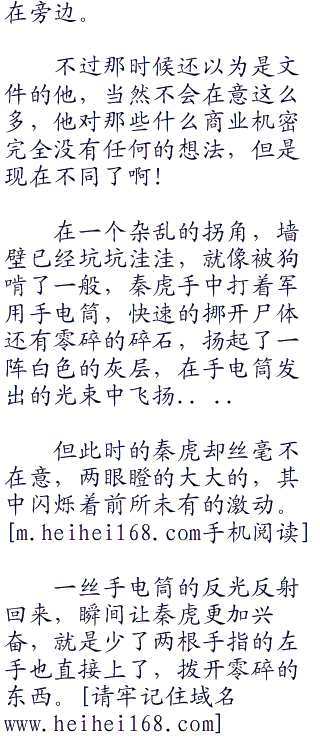 在旁边。
不过那时候还以为是文
件的他，当然不会在意这么
多，他对那些什么商业机密
完全没有任何的想法，但是
现在不同了啊！
在一个杂乱的拐角，墙
壁已经坑坑洼洼，就像被狗
啃了一般，秦虎手中打着军
用手电筒，快速的挪开尸体
还有零碎的碎石，扬起了一
阵白色的灰层，在手电筒发
出的光束中飞扬．．．．
但此时的秦虎却丝毫不
在意，两眼瞪的大大的，其
中闪烁着前所未有的激动。
[m.heihei168.com手机阅读]
一丝手电筒的反光反射
回来，瞬间让秦虎更加兴
奋，就是少了两根手指的左
手也直接上了，拨开零碎的
东西。[请牢记住域名
www.heihei168.com]